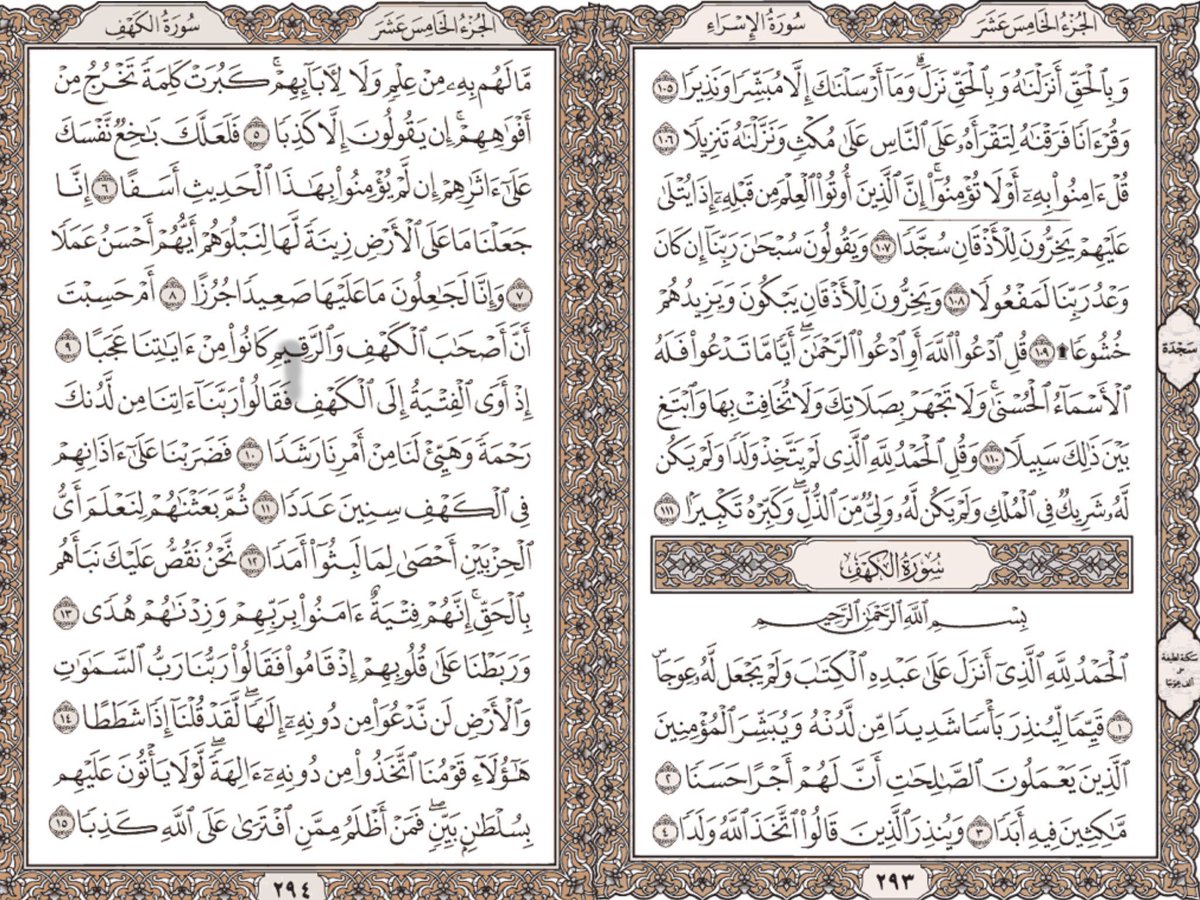 الجُزْءُ الخَامِسَ عَشَرَ
سُورَةُ الإِسْرَاءِ
وَبِٱلْحَقِّ أَنزَلْنَٰهُ وَبِٱلْحَقِّ نَزَلَ ۗ وَمَآ أَرْسَلْنَٰكَ إِلَّا مُبَشِّرًا وَنَذِيرًا ١٠٥
وَقُرْءَانًا فَرَقْنَٰهُ لِتَقْرَأَهُۥ عَلَى ٱلنَّاسِ عَلَىٰ مُكْثٍ وَنَزَّلْنَٰهُ تَنزِيلًا ١٠٦
قُلْ ءَامِنُوا۟ بِهِۦٓ أَوْ لَا تُؤْمِنُوٓا۟ ۚ إِنَّ ٱلَّذِينَ أُوتُوا۟ ٱلْعِلْمَ مِن قَبْلِهِۦٓ إِذَا يُتْلَىٰ
عَلَيْهِمْ يَخِرُّونَ لِلْأَذْقَانِ سُجَّدًا ١٠٧ وَيَقُولُونَ سُبْحَٰنَ رَبِّنَآ إِن كَانَ
وَعْدُ رَبِّنَا لَمَفْعُولًا ١٠٨ وَيَخِرُّونَ لِلْأَذْقَانِ يَبْكُونَ وَيَزِيدُهُمْ
خُشُوعًا ۩ ١٠٩ قُلِ ٱدْعُوا۟ ٱللَّهَ أَوِ ٱدْعُوا۟ ٱلرَّحْمَٰنَ ۖ أَيًّا مَّا تَدْعُوا۟ فَلَهُ
ٱلْأَسْمَآءُ ٱلْحُسْنَىٰ ۚ وَلَا تَجْهَرْ بِصَلَاتِكَ وَلَا تُخَافِتْ بِهَا وَٱبْتَغِ
بَيْنَ ذَٰلِكَ سَبِيلًا ١١٠ وَقُلِ ٱلْحَمْدُ لِلَّهِ ٱلَّذِى لَمْ يَتَّخِذْ وَلَدًا وَلَمْ يَكُن
لَّهُۥ شَرِيكٌ فِى ٱلْمُلْكِ وَلَمْ يَكُن لَّهُۥ وَلِىٌّ مِّنَ ٱلذُّلِّ ۖ وَكَبِّرْهُ تَكْبِيرًۢا ١١١
سُورَةُ الكَهْفِ
بِسْمِ ٱللَّهِ ٱلرَّحْمَٰنِ ٱلرَّحِيمِ
ٱلْحَمْدُ لِلَّهِ ٱلَّذِىٓ أَنزَلَ عَلَىٰ عَبْدِهِ ٱلْكِتَٰبَ وَلَمْ يَجْعَل لَّهُۥ عِوَجَا ۜ
١ قَيِّمًا لِّيُنذِرَ بَأْسًا شَدِيدًا مِّن لَّدُنْهُ وَيُبَشِّرَ ٱلْمُؤْمِنِينَ
ٱلَّذِينَ يَعْمَلُونَ ٱلصَّٰلِحَٰتِ أَنَّ لَهُمْ أَجْرًا حَسَنًا ٢
مَّٰكِثِينَ فِيهِ أَبَدًا ٣ وَيُنذِرَ ٱلَّذِينَ قَالُوا۟ ٱتَّخَذَ ٱللَّهُ وَلَدًا ٤
سَجْدَة
سكتة لطيفة
على
ألف عوجا
٢٩٣
الجُزْءُ الخَامِسَ عَشَرَ
سُورَةُ الكَهْفِ
مَّا لَهُم بِهِۦ مِنْ عِلْمٍ وَلَا لِـَٔابَآئِهِمْ ۚ كَبُرَتْ كَلِمَةً تَخْرُجُ مِنْ
أَفْوَٰهِهِمْ ۚ إِن يَقُولُونَ إِلَّا كَذِبًا ٥ فَلَعَلَّكَ بَٰخِعٌ نَّفْسَكَ
عَلَىٰٓ ءَاثَٰرِهِمْ إِن لَّمْ يُؤْمِنُوا۟ بِهَٰذَا ٱلْحَدِيثِ أَسَفًا ٦ إِنَّا
جَعَلْنَا مَا عَلَى ٱلْأَرْضِ زِينَةً لَّهَا لِنَبْلُوَهُمْ أَيُّهُمْ أَحْسَنُ عَمَلًا
٧ وَإِنَّا لَجَٰعِلُونَ مَا عَلَيْهَا صَعِيدًا جُرُزًا ٨ أَمْ حَسِبْتَ
أَنَّ أَصْحَٰبَ ٱلْكَهْفِ وَٱلرَّقِيمِ كَانُوا۟ مِنْ ءَايَٰتِنَا عَجَبًا ٩
إِذْ أَوَى ٱلْفِتْيَةُ إِلَى ٱلْكَهْفِ فَقَالُوا۟ رَبَّنَآ ءَاتِنَا مِن لَّدُنكَ
رَحْمَةً وَهَيِّئْ لَنَا مِنْ أَمْرِنَا رَشَدًا ١٠ فَضَرَبْنَا عَلَىٰٓ ءَاذَانِهِمْ
فِى ٱلْكَهْفِ سِنِينَ عَدَدًا ١١ ثُمَّ بَعَثْنَٰهُمْ لِنَعْلَمَ أَىُّ
ٱلْحِزْبَيْنِ أَحْصَىٰ لِمَا لَبِثُوٓا۟ أَمَدًا ١٢ نَّحْنُ نَقُصُّ عَلَيْكَ نَبَأَهُم
بِٱلْحَقِّ ۚ إِنَّهُمْ فِتْيَةٌ ءَامَنُوا۟ بِرَبِّهِمْ وَزِدْنَٰهُمْ هُدًى ١٣
وَرَبَطْنَا عَلَىٰ قُلُوبِهِمْ إِذْ قَامُوا۟ فَقَالُوا۟ رَبُّنَا رَبُّ ٱلسَّمَٰوَٰتِ
وَٱلْأَرْضِ لَن نَّدْعُوَا۟ مِن دُونِهِۦٓ إِلَٰهًا ۖ لَّقَدْ قُلْنَآ إِذًا شَطَطًا ١٤
هَٰٓؤُلَآءِ قَوْمُنَا ٱتَّخَذُوا۟ مِن دُونِهِۦٓ ءَالِهَةً ۖ لَّوْلَا يَأْتُونَ عَلَيْهِم
بِسُلْطَٰنٍۭ بَيِّنٍ ۖ فَمَنْ أَظْلَمُ مِمَّنِ ٱفْتَرَىٰ عَلَى ٱللَّهِ كَذِبًا ١٥
٢٩٤